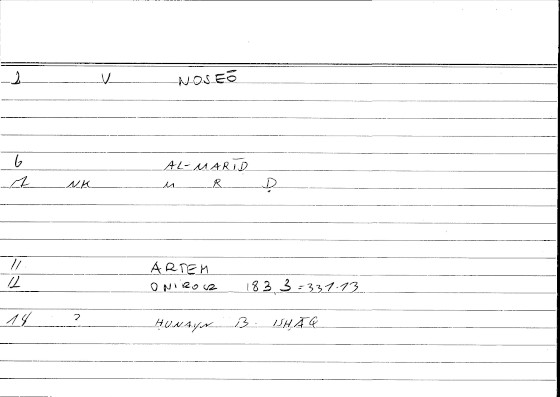 1 V NOSEŌ
6 AL-MARĪḌ
NK M R Ḍ
11 ARTEM
12 ONIROCR 183,3=331.13
14 ? ḤUNAYN B. ISḤĀQ